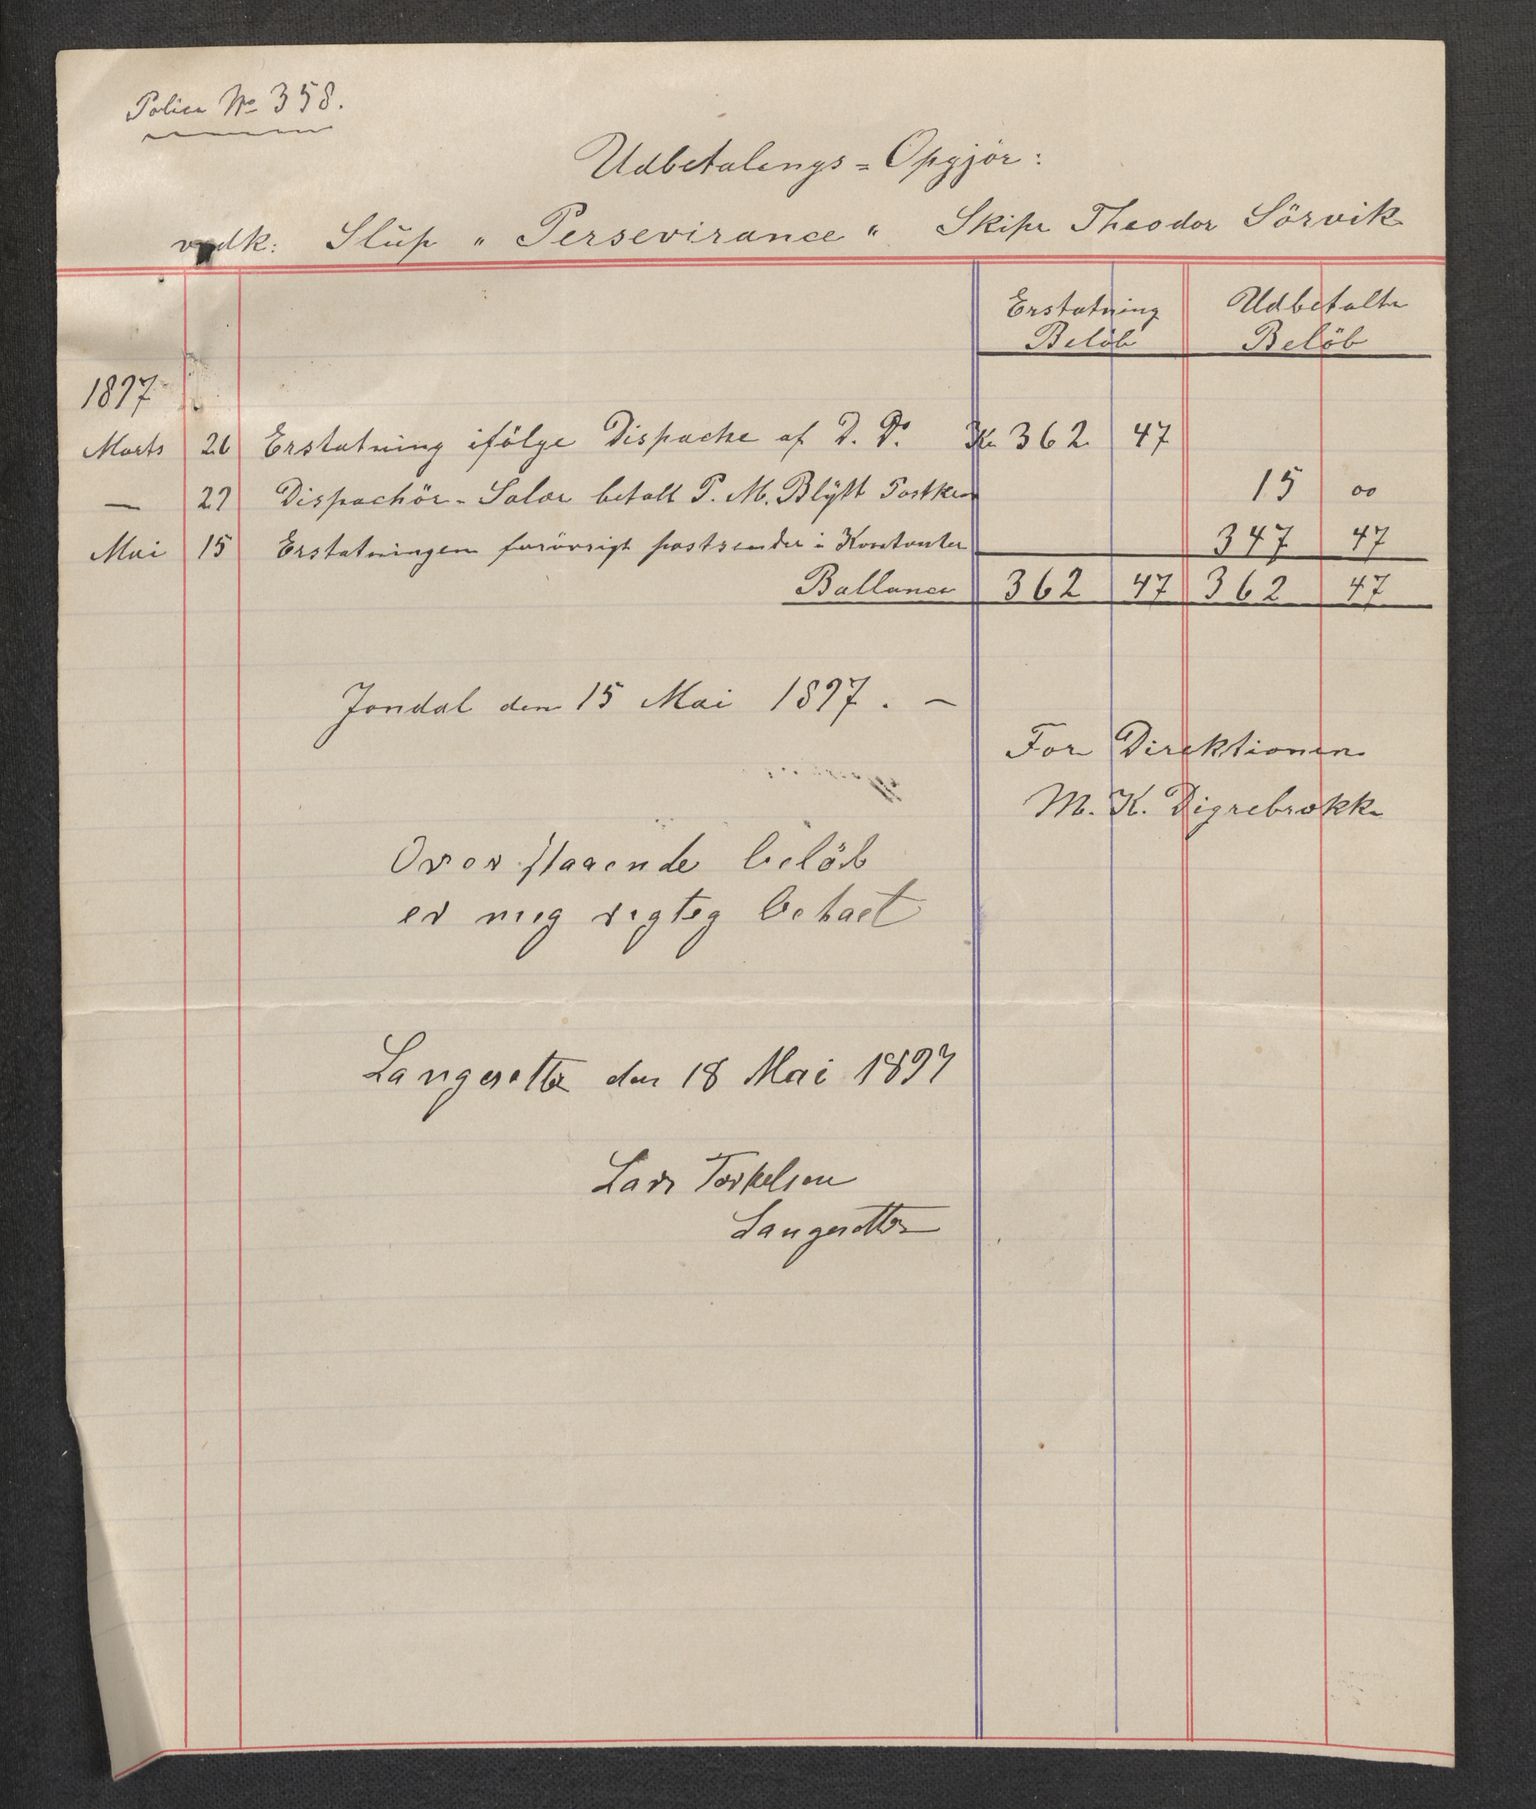 Police No 358.
Udbetalings = Opgjör:
vedk: Slüp " Persevirance " Skipr Theodor Sörvik
Erstatning Beløb
Udbetalte Belöb
1897
Marts 26 Erstatning ifölge Dispache af D. Do. Kr 362 47
— 27 Dispachör - Salær betalt P. M. Blÿtt Postkv 15 00
Mai 15 Erstatningen forövrigt postsendes i Kontanter 347 47
Ballance 362 47 362 47
Jondal den 15 Mai 1897. —
For Direktionen
M. K. Digrebrokke
Overstaaende belöb
er mig rigtig betaelt
Langesetter den 18 Mai 1897
Lars Torkelsen
Langesetter